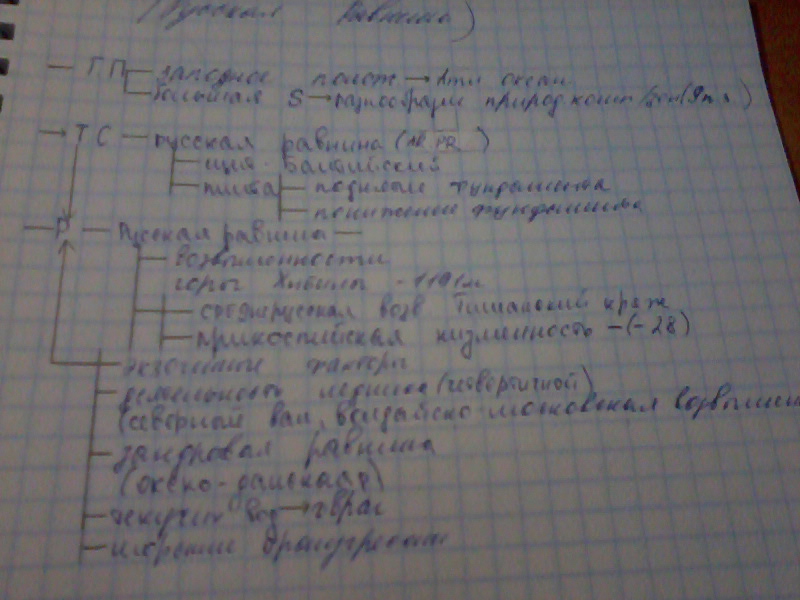 (Русская Равнина)
— ГП — западное полож → Атл океан
большая S → разнообразие природ комп
→ ТС — русская равнина (AR PR)
— щит - Балтийский
— плита — поднятие фундамента
— понижение фундамента
— Р — Русская равнина —
— возвышенности
горы Хибины - 1191м
— среднерусская возв Тиманский кряж
— прикаспийская низменность - (-28)
— экзогенные факторы
— деятельность ледника (четвертичной)
(северной вал, валдайско-московская возвышен
— зандровая равнина
(окско-донская)
— текучих вод → овраг